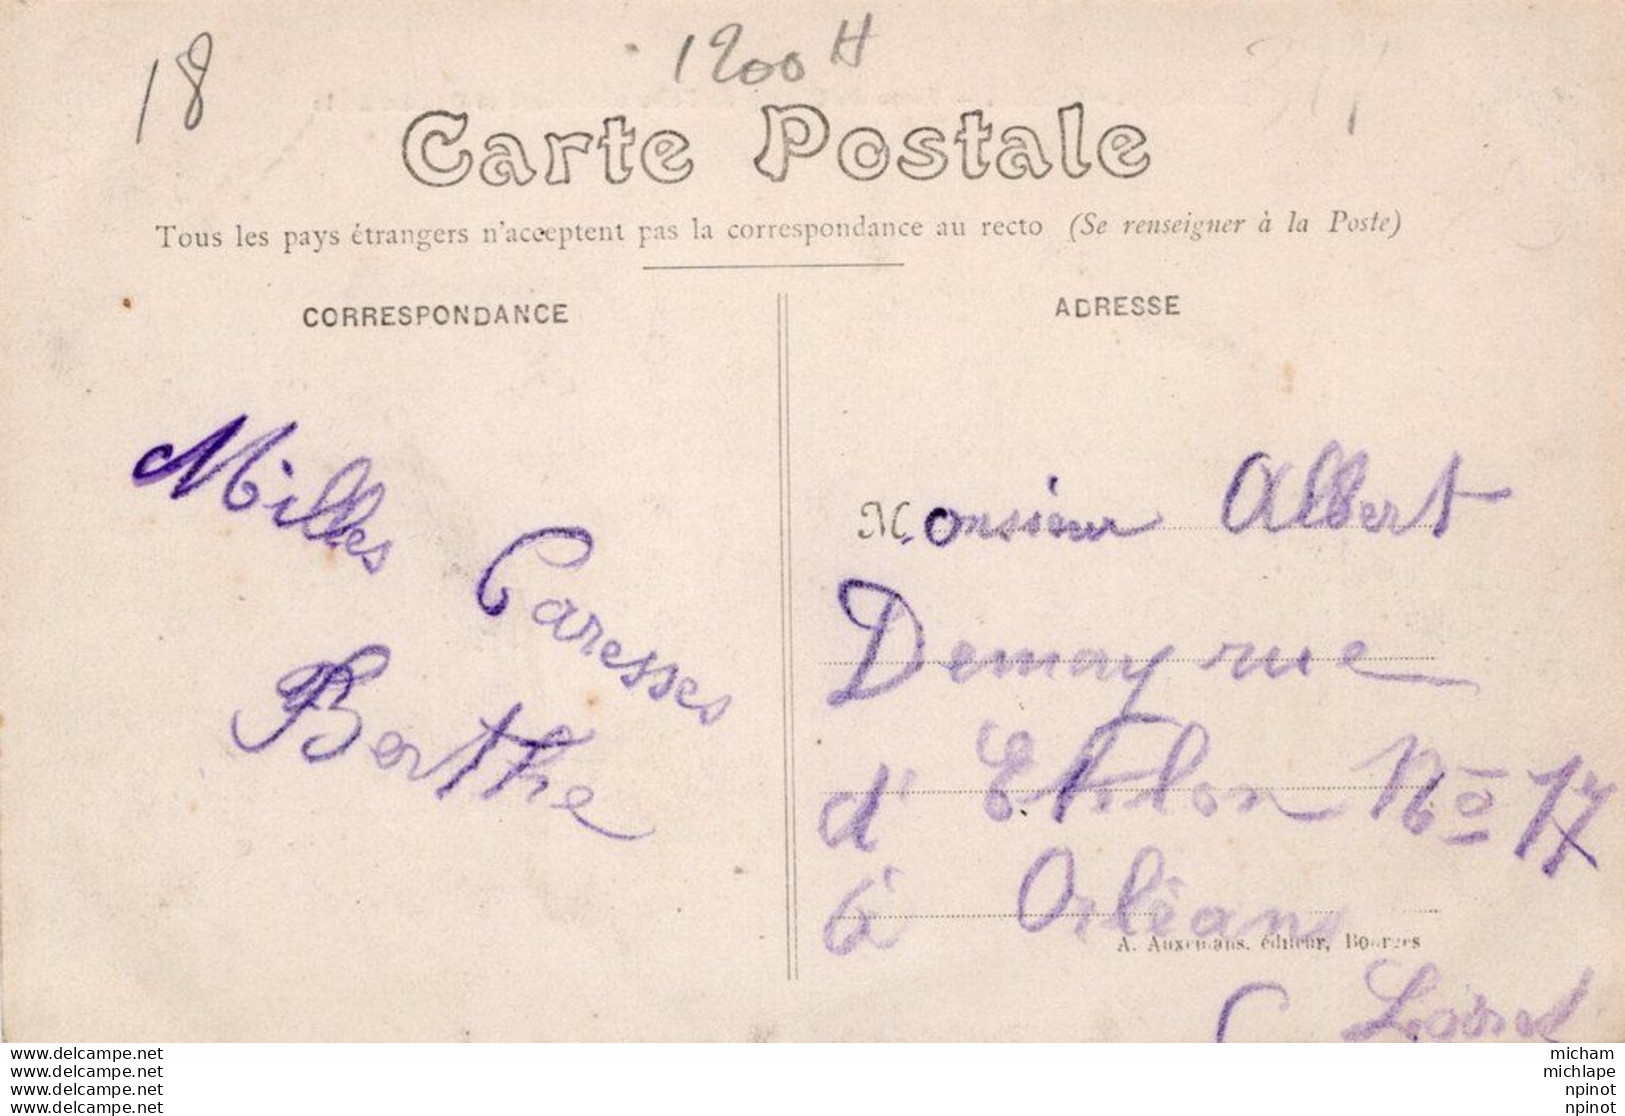 18
1200 H
Carte Postale
Tous les pays étrangers n'acceptent pas la correspondance au recto (Se renseigner à la Poste)
CORRESPONDANCE
Milles Caresses
Berthe
ADRESSE
Monsieur Albert
Demay rue
d' No 17
à Orléans
A. Auxenfans, éditeur, Bourges
( Loiret
www.delcampe.net
www.delcampe.net
www.delcampe.net
www.delcampe.net
micham
michlape
npinot
npinot